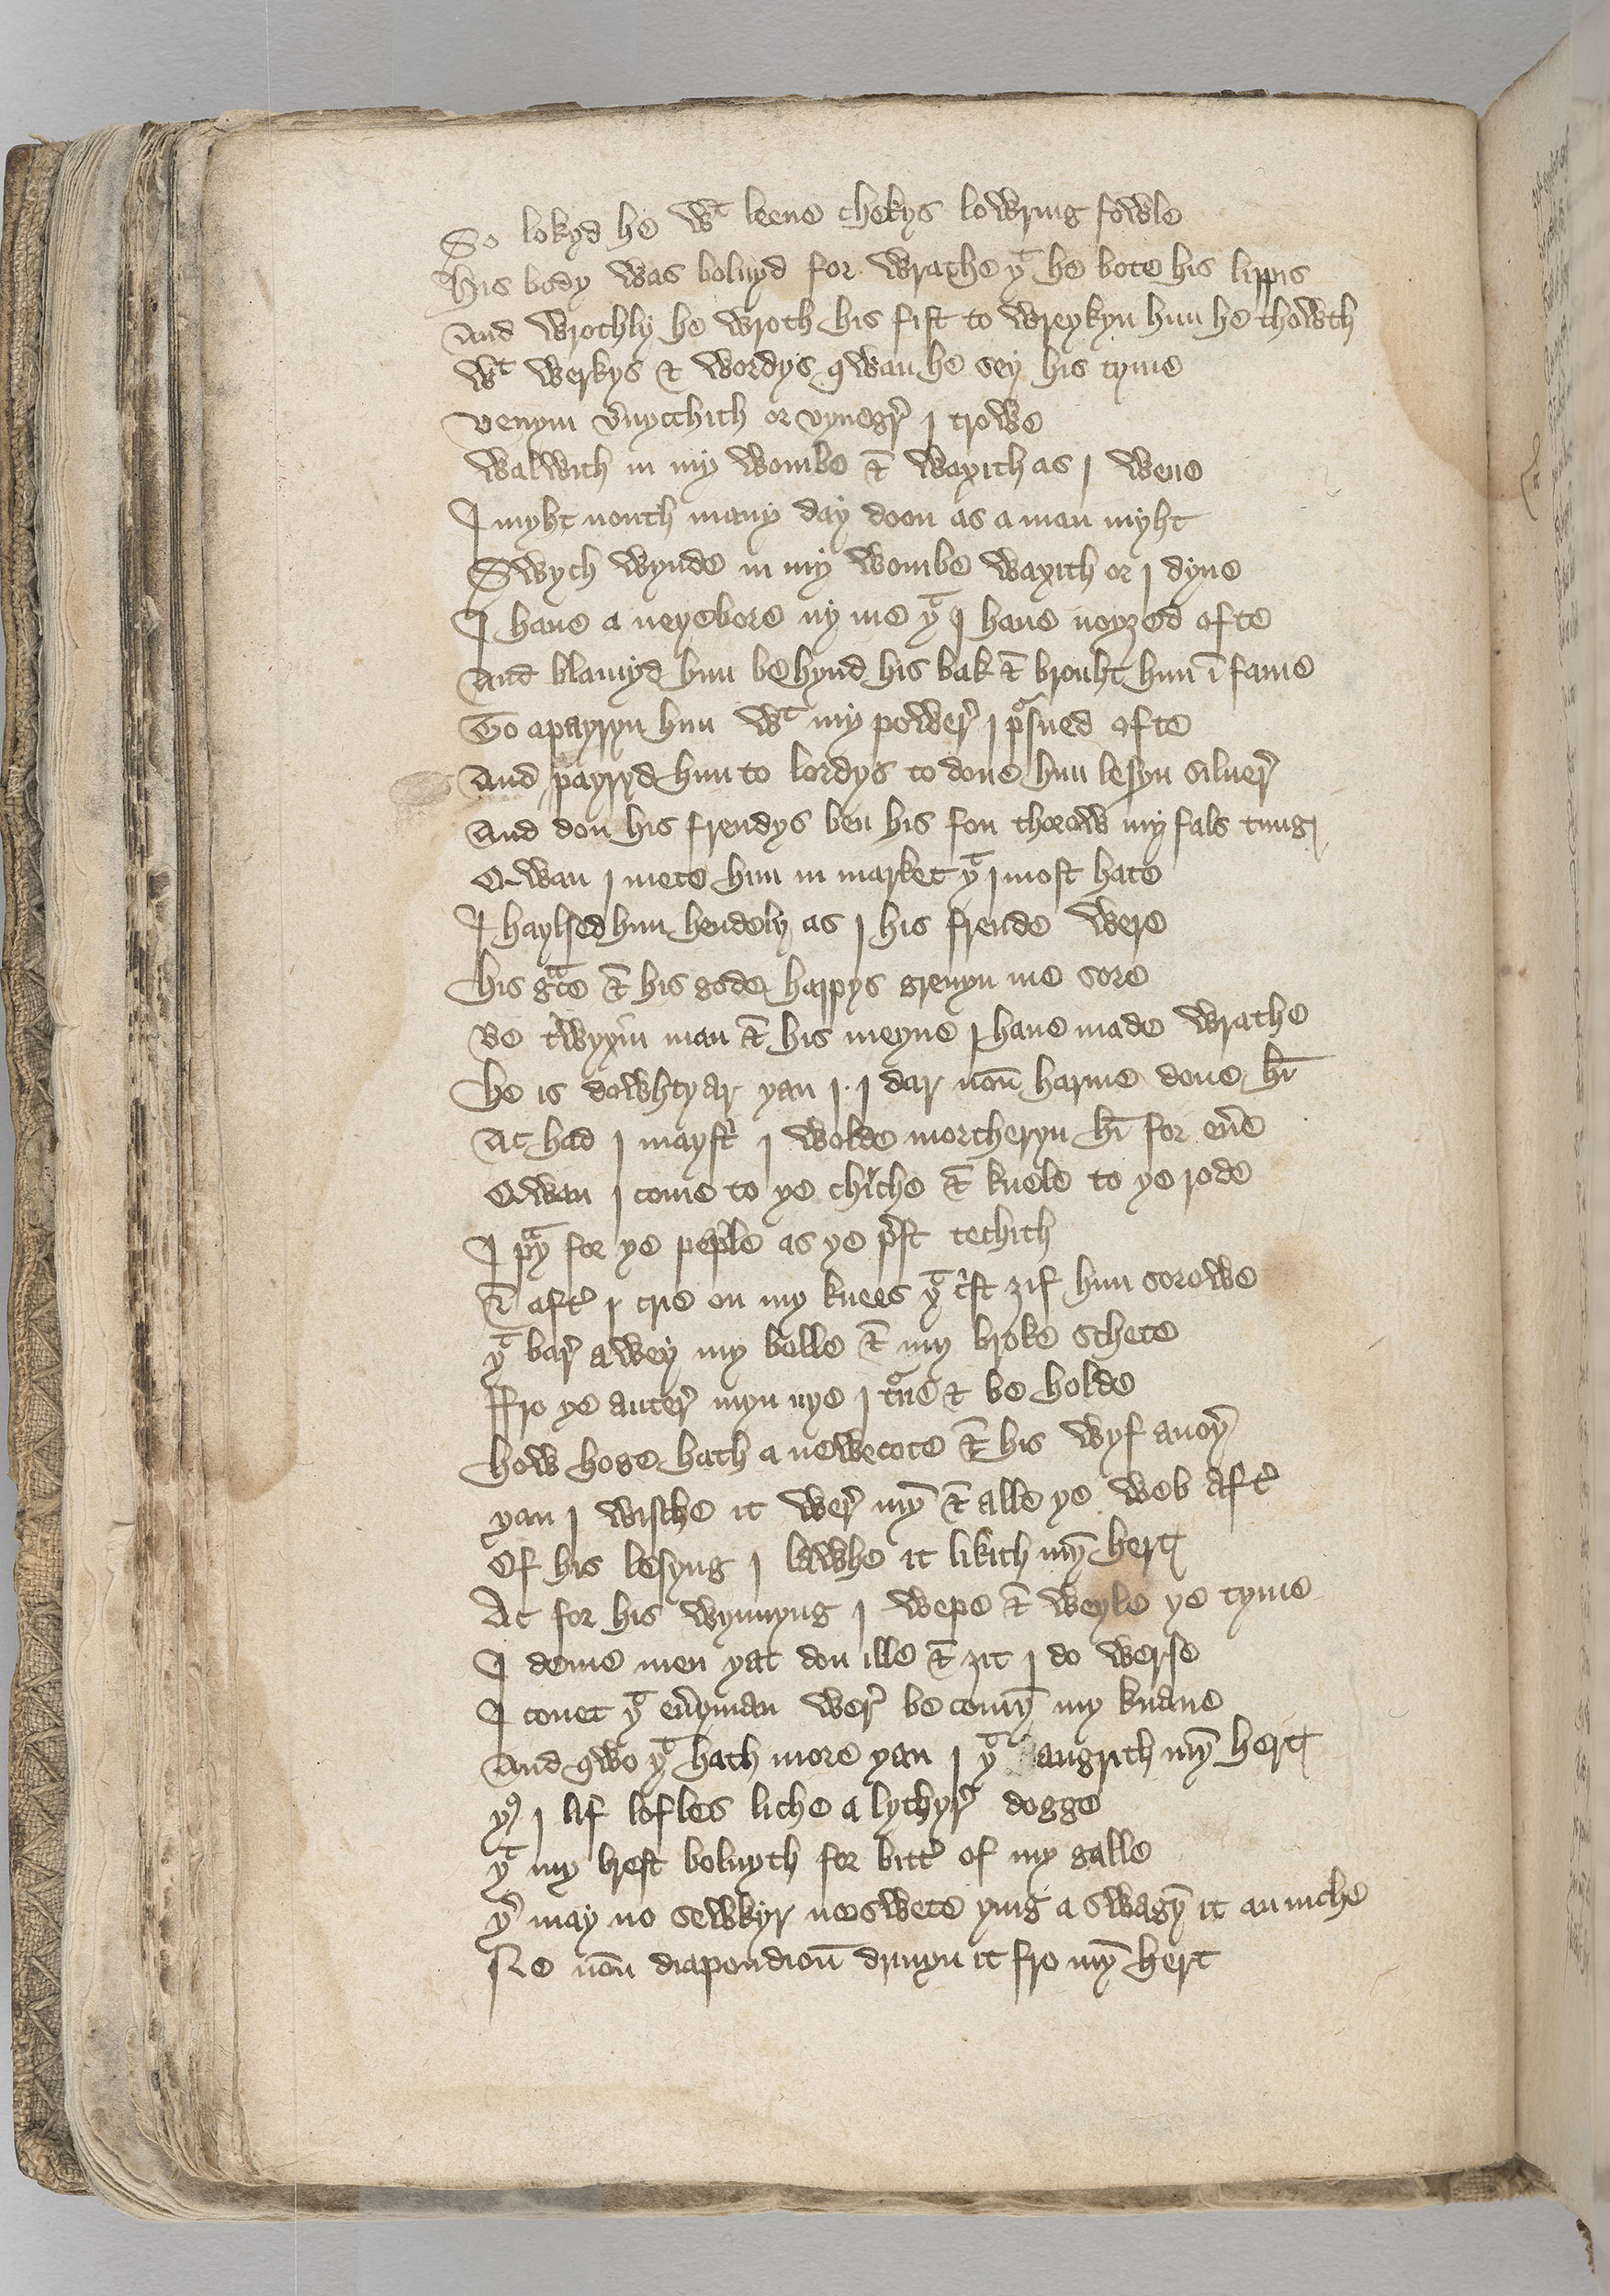 So lokyd he wᵗ leene chekys lowring fowle
His body was bolnyd for wrathe yᵗ he bote his lippis
And wrothly he wroth his fist to wreykyn him he thowth
Wᵗ werkys & wordys qwan he sey his tyme
Venym v̓nycchith or vynegr̄ I trowe
Walwith in my wombe & waxith as I wene
I myht nouth many day doon as a man myht
Swych wynde in my wombe waxith or I dyne
I haue a neyebore ny me yᵗ I haue noyzed ofte
And blamyd him behynd his bak & brouht him ī fame
To apayryn him wᵗ my power̄ I pᵒsued ofte
And payryd him to lordys to done him lesyn siluer̄
And don his frendys ben his fon thorow my fals tung
Qwan I mete him in market yᵗ I most hate
I haylsed him hendely as I his frende were
His gᵃce & his gode happys greuyn me sore
Be twyxin man & his meyne I haue made wrathe
He is dowhtyar yan I . I dar nōn harme done hī
At had I maystʳ I wolde mortheryn hī for eūe
Qwan I come to ye chʳche & knele to ye rode
I pᵃy for ye peple as ye pʳst techith
& aftʳ I crie on my knees yᵗ cʳst zif him sorowe
yᵗ bar̄ awey my bolle & my broke schete
Ffro ye auter̄ myn nye I tᵒne & be holde
How hoge hath a newe cote & his wyf anoyʳ
yan I wische it wer̄ mȳ & alle ye web aftʳ
Of his lesyng I lawhe it likith mȳ hert
At for his wynnyng I wepe & weyle ye tyme
I deme men yat don ille & zit I do werse
I couet yᵗ eūyman wer̄ be comȳ my knaue
And qwo yᵗ hath more yan I yᵗ angrith mȳ hert
yᵘˢ I lif lofles liche a lythyr̄ dogge
yᵗ my brest bolnyth for bittʳ of my galle
yʳ may no sewkyr ne swete ying a swagȳ it an inche
Ne nōn diapendioū driuyn it fro mȳ hert